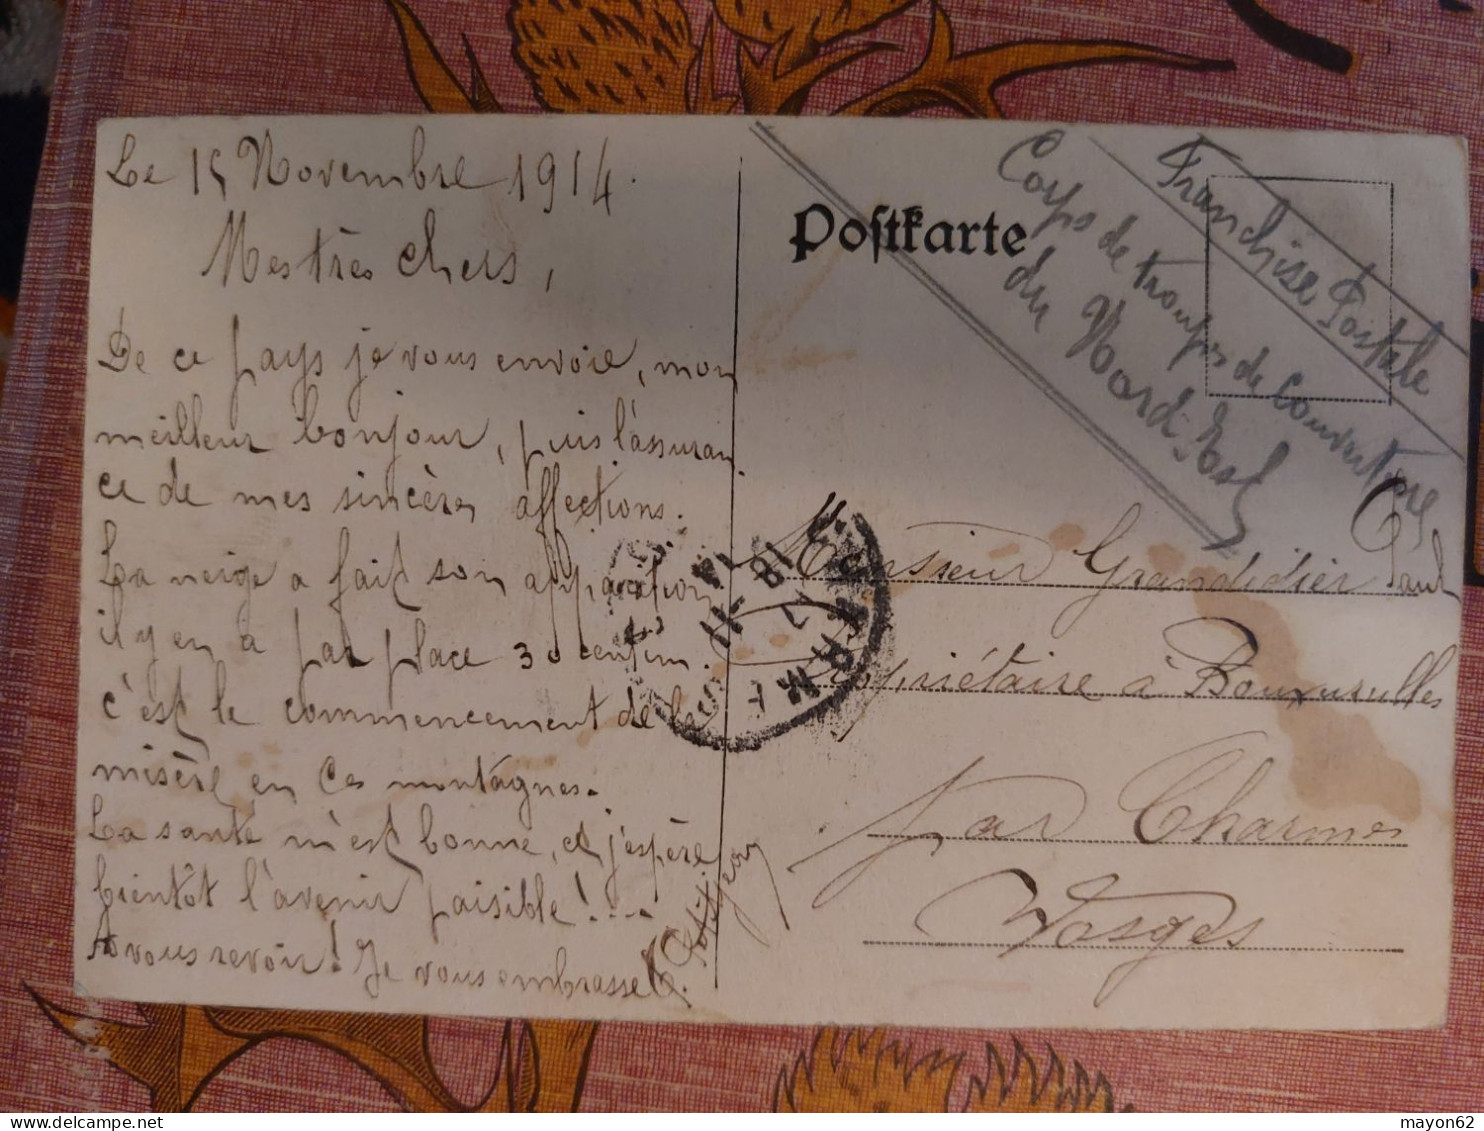 Le 15 Novembre 1914.
Mes très chers,
De ce pays je vous envoie, mon
meilleur bonjour, puis l'assuran
ce de mes sincères affections.
La neige a fait son apparation
il y en a par place 30 centim.
c'est le commencement de la
misère en ces montagnes.
La santé m'est bonne, et j'espère
bientôt l'avenir paisible!...
A vous revoir! Je vous embrasse
Petitjean
Postkarte
Franchise Postale
Corps de troupes de Couverture
du Nord-Est
Monsieur Grandidier Paul
Propriétaire à Bouxurulles
par Charmes
Vosges
18
11
14
mayon62